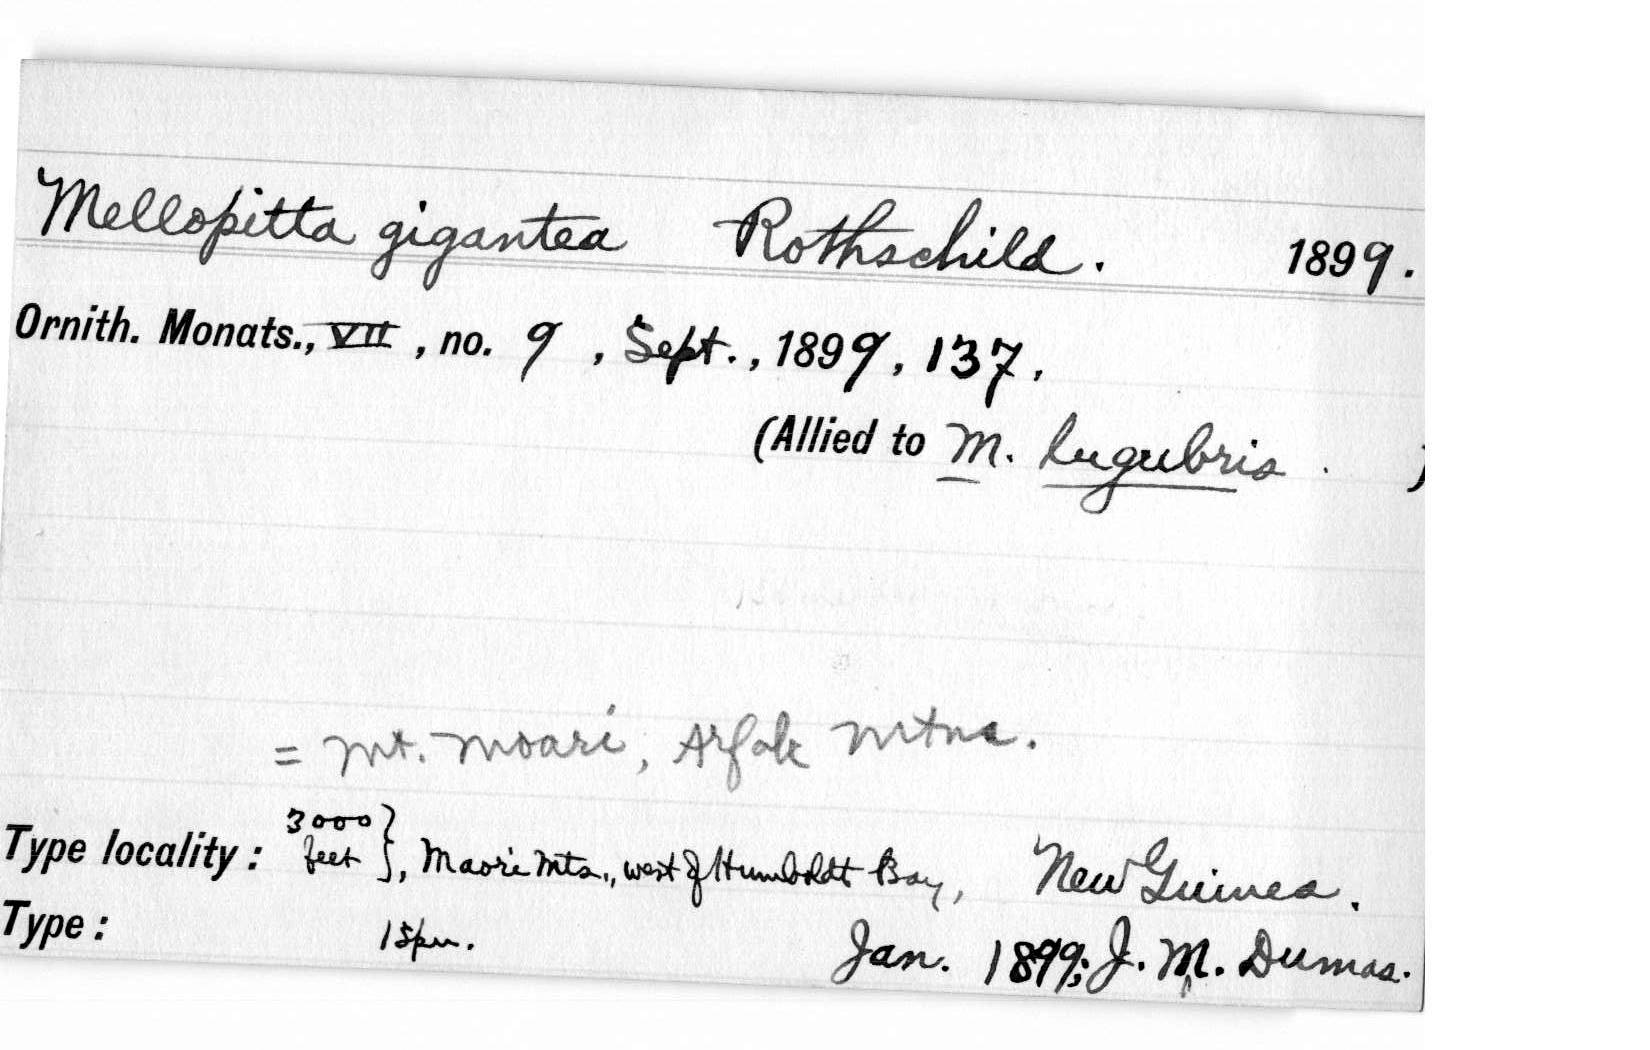 Mellopitta gigantea Rothschild. 1899.
Ornith. Monats., VII, no. 9, Sept., 1899, 137.
(Allied to M. lugubris. )
= Mt. Moari, Arfak Mtns.
3000
Type locality: feet }, Maori Mts., west of Humboldt Bay, New Guinea.
Type: 1 spm. Jan. 1899; J. M. Dumas.